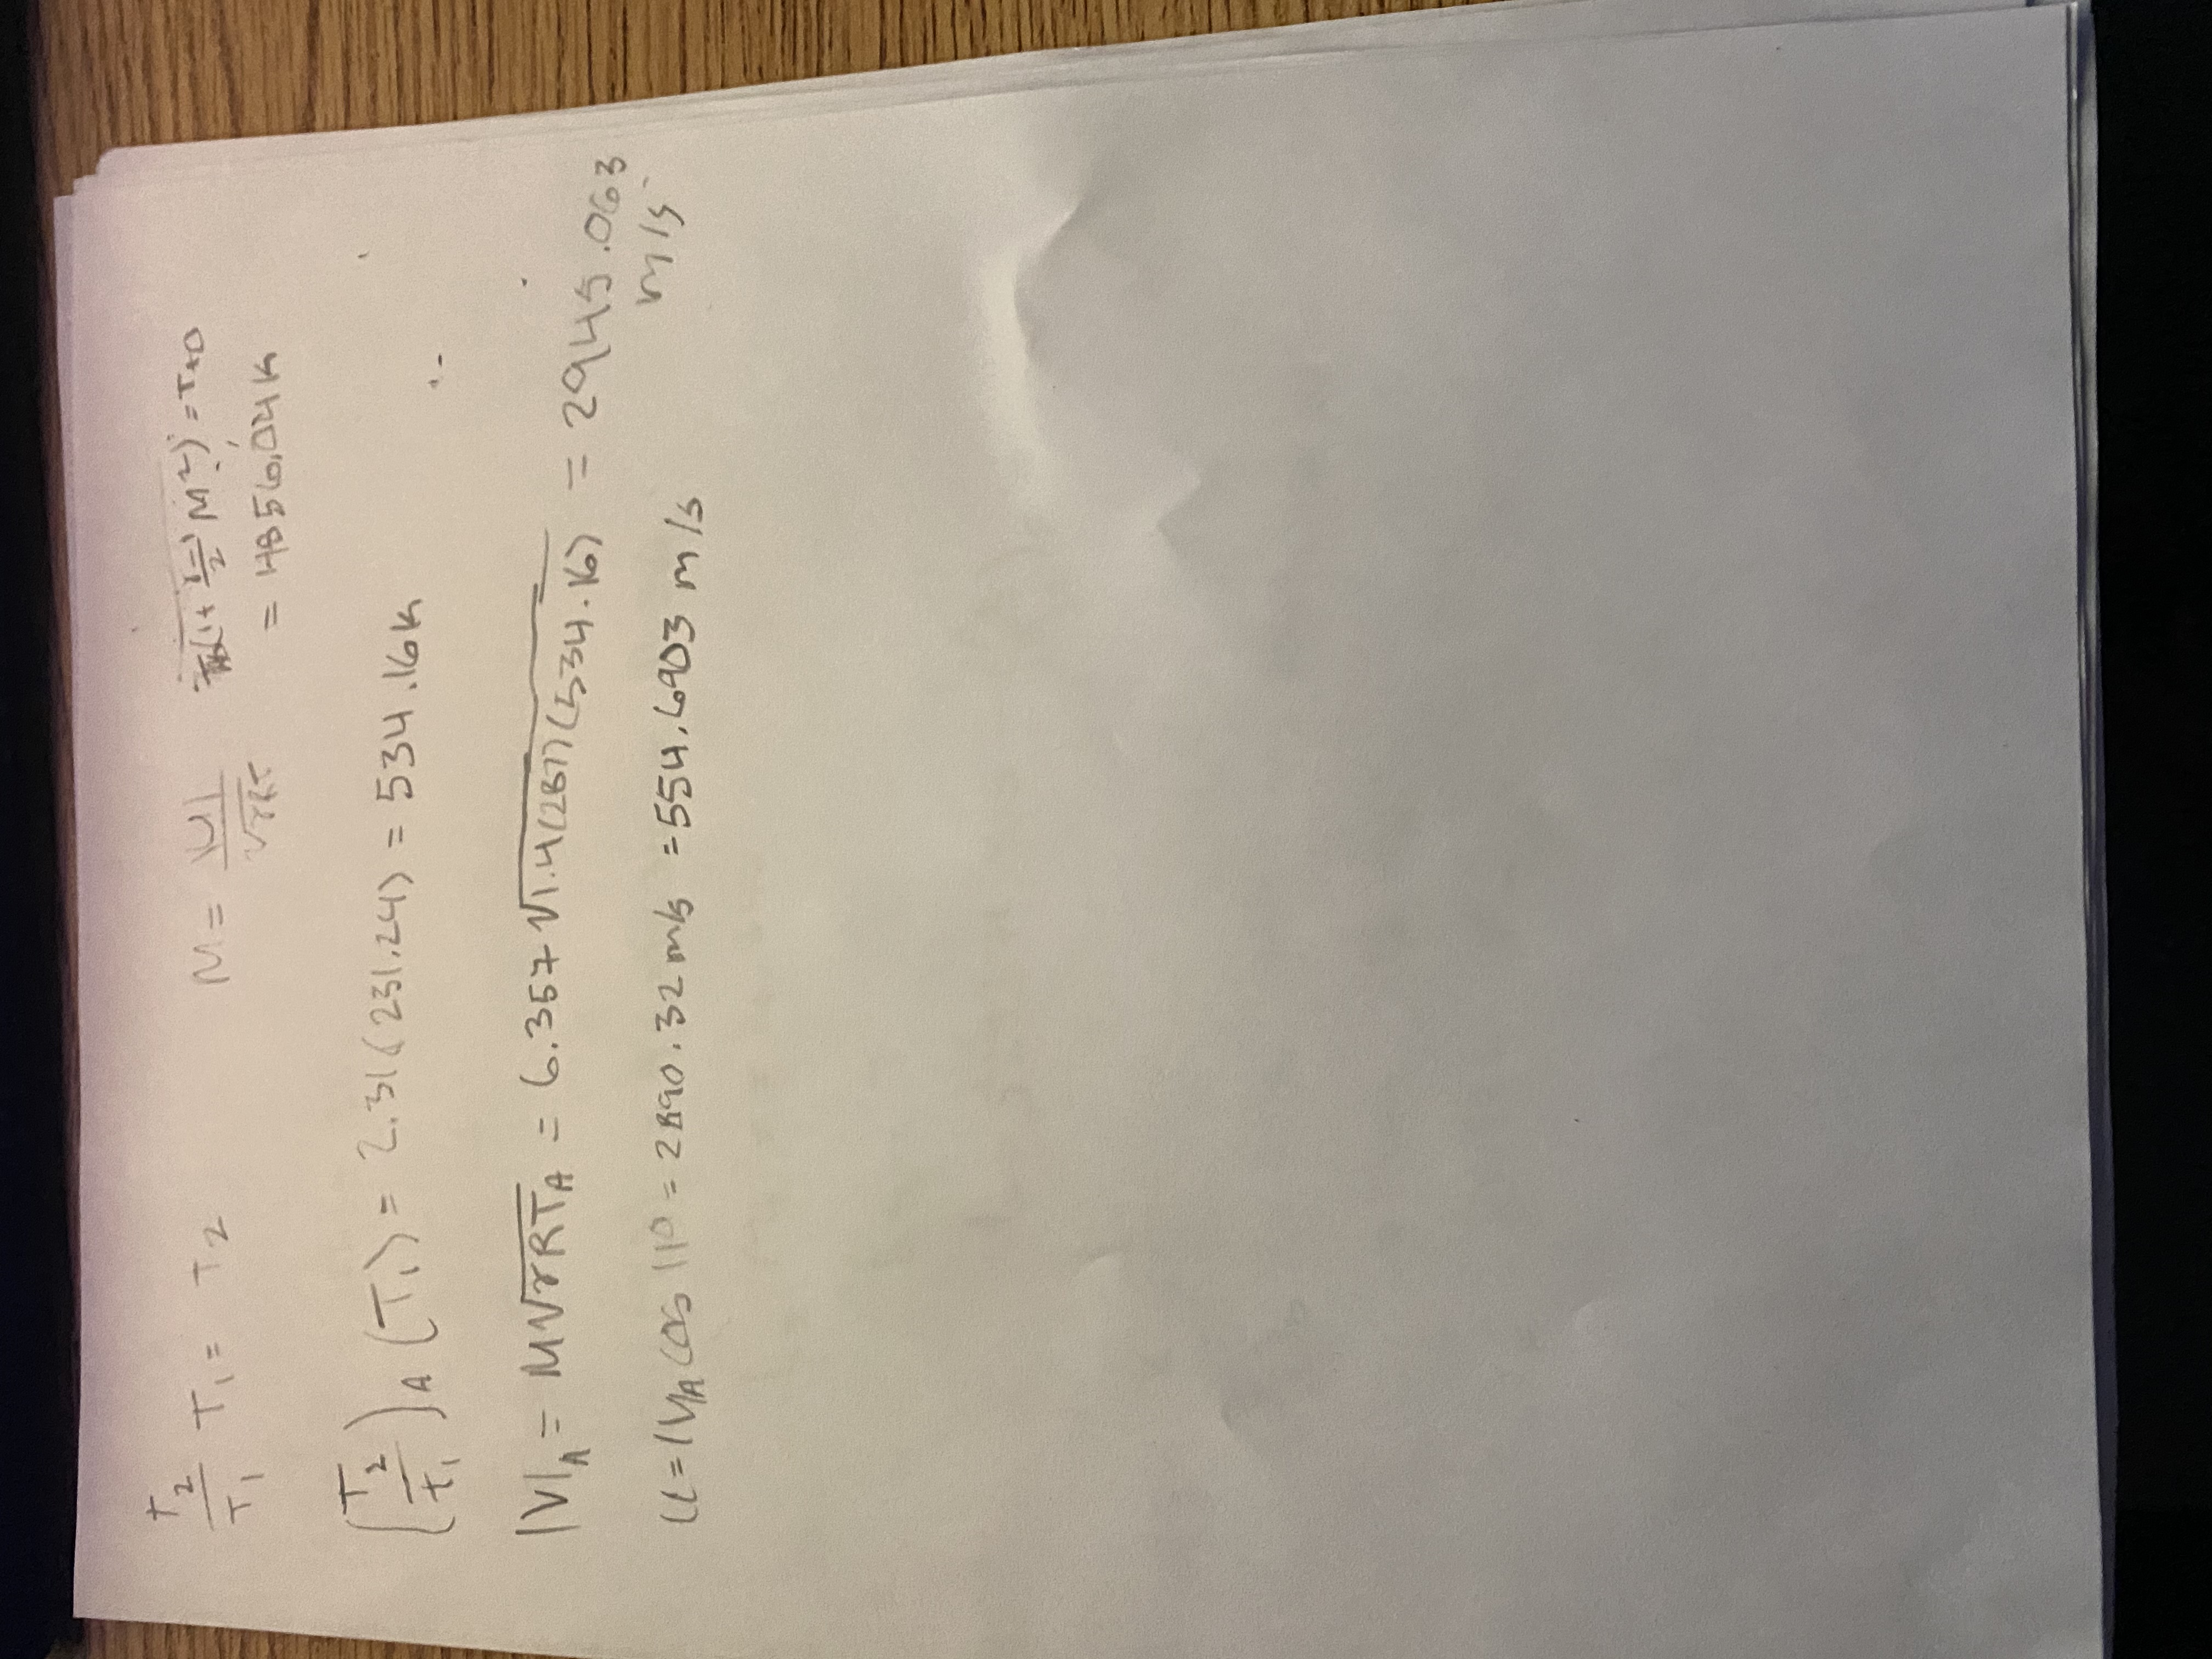 T2/T1 T1 = T2 M = |V|/√γRT TA(1+ γ-1/2 M²) = Tto
= 4856.04K
(T2/T1)A (T1) = 2.31(231.24) = 534.16K
|V|A = M√γRTA = 6.357 √1.4(287)(534.16) = 2945.063 m/s
u = |V|A cos 11° = 2890.32 m/s = 554.6903 m/s